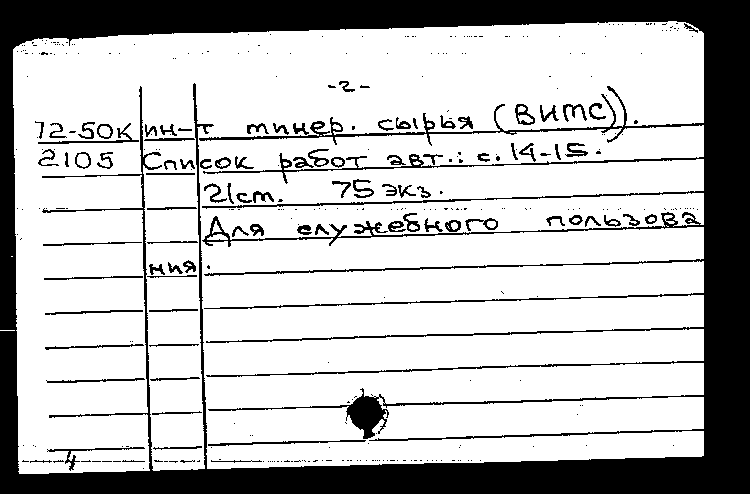 -2-
72-50К ин-т минер. сырья (ВИМС)).
2105 Список работ авт.: с. 14-15.
21см. 75 экз.
Для служебного пользова
ния.
4